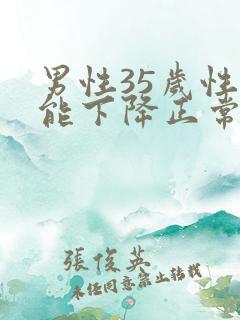 男性35歲性
能下降正常
張俊英
未经同意禁止转载